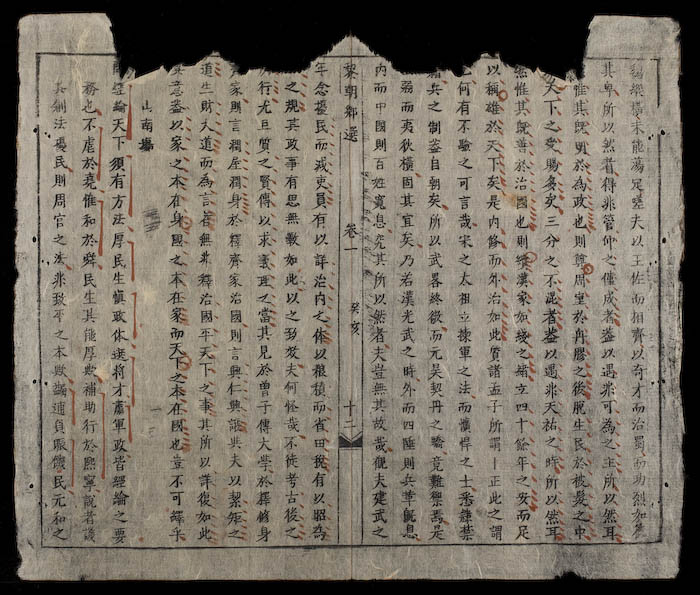 樂塲未能蕩定噫夫以王佐而相齊以奇才而治蜀而功烈如
其卑所以然者得非管仲之僅成者盖以遇非可為之主所以然耳
惟其既明於為政也則尊周室於舟膠之後脫生民於被髮之中
天下之受賜多矣三分之不混者盖以遇非天祐之時所以然耳
然惟其既善於治國也則續漢家如綫之緒立四十餘年之安而足
以稱雄於天下矣是內脩而外治如此質諸孟子所謂一正此之謂
也何有不驗之可言哉宋之太祖立揀軍之法而獷悍之士悉隸禁
籍兵之制盖自朝矣所以武畧終微而元吴契丹之驕竟難禦焉是
弱而夷狄橫固其宜矣乃若漢光武之時外而四陲則兵革既息
內而中國則百姓寬息究其所以然者夫豈無其故哉觀夫建武之
黎朝鄉選 卷一 癸亥 十二
年念擾民而減吏員有以詳治內之体以糧積而省田稅有以昭為
之規其政事有思無斁如此以之劲效夫何怪哉不徒考古後之
行尤旦質之賢傳以求義理之當其見於曾子傳大學於釋脩身
齊家則言潤屋潤身於釋齊家治國則言興仁興讓與夫以絜矩之
道生財大道而為言者無非釋治國平天下之事其所以詳復如此
其意盖以家之本在身國之本在家而天下之本在國也豈不可繹乎
山南塲
經綸天下須有方法厚民生愼政体选將才肅軍政皆經綸之要
務也不虐於堯惟和於舜民生其能厚歟補助行於熙寧說者謂
其創法擾民則周官之法非致平之本歟蠲逋負賑饑民元和之